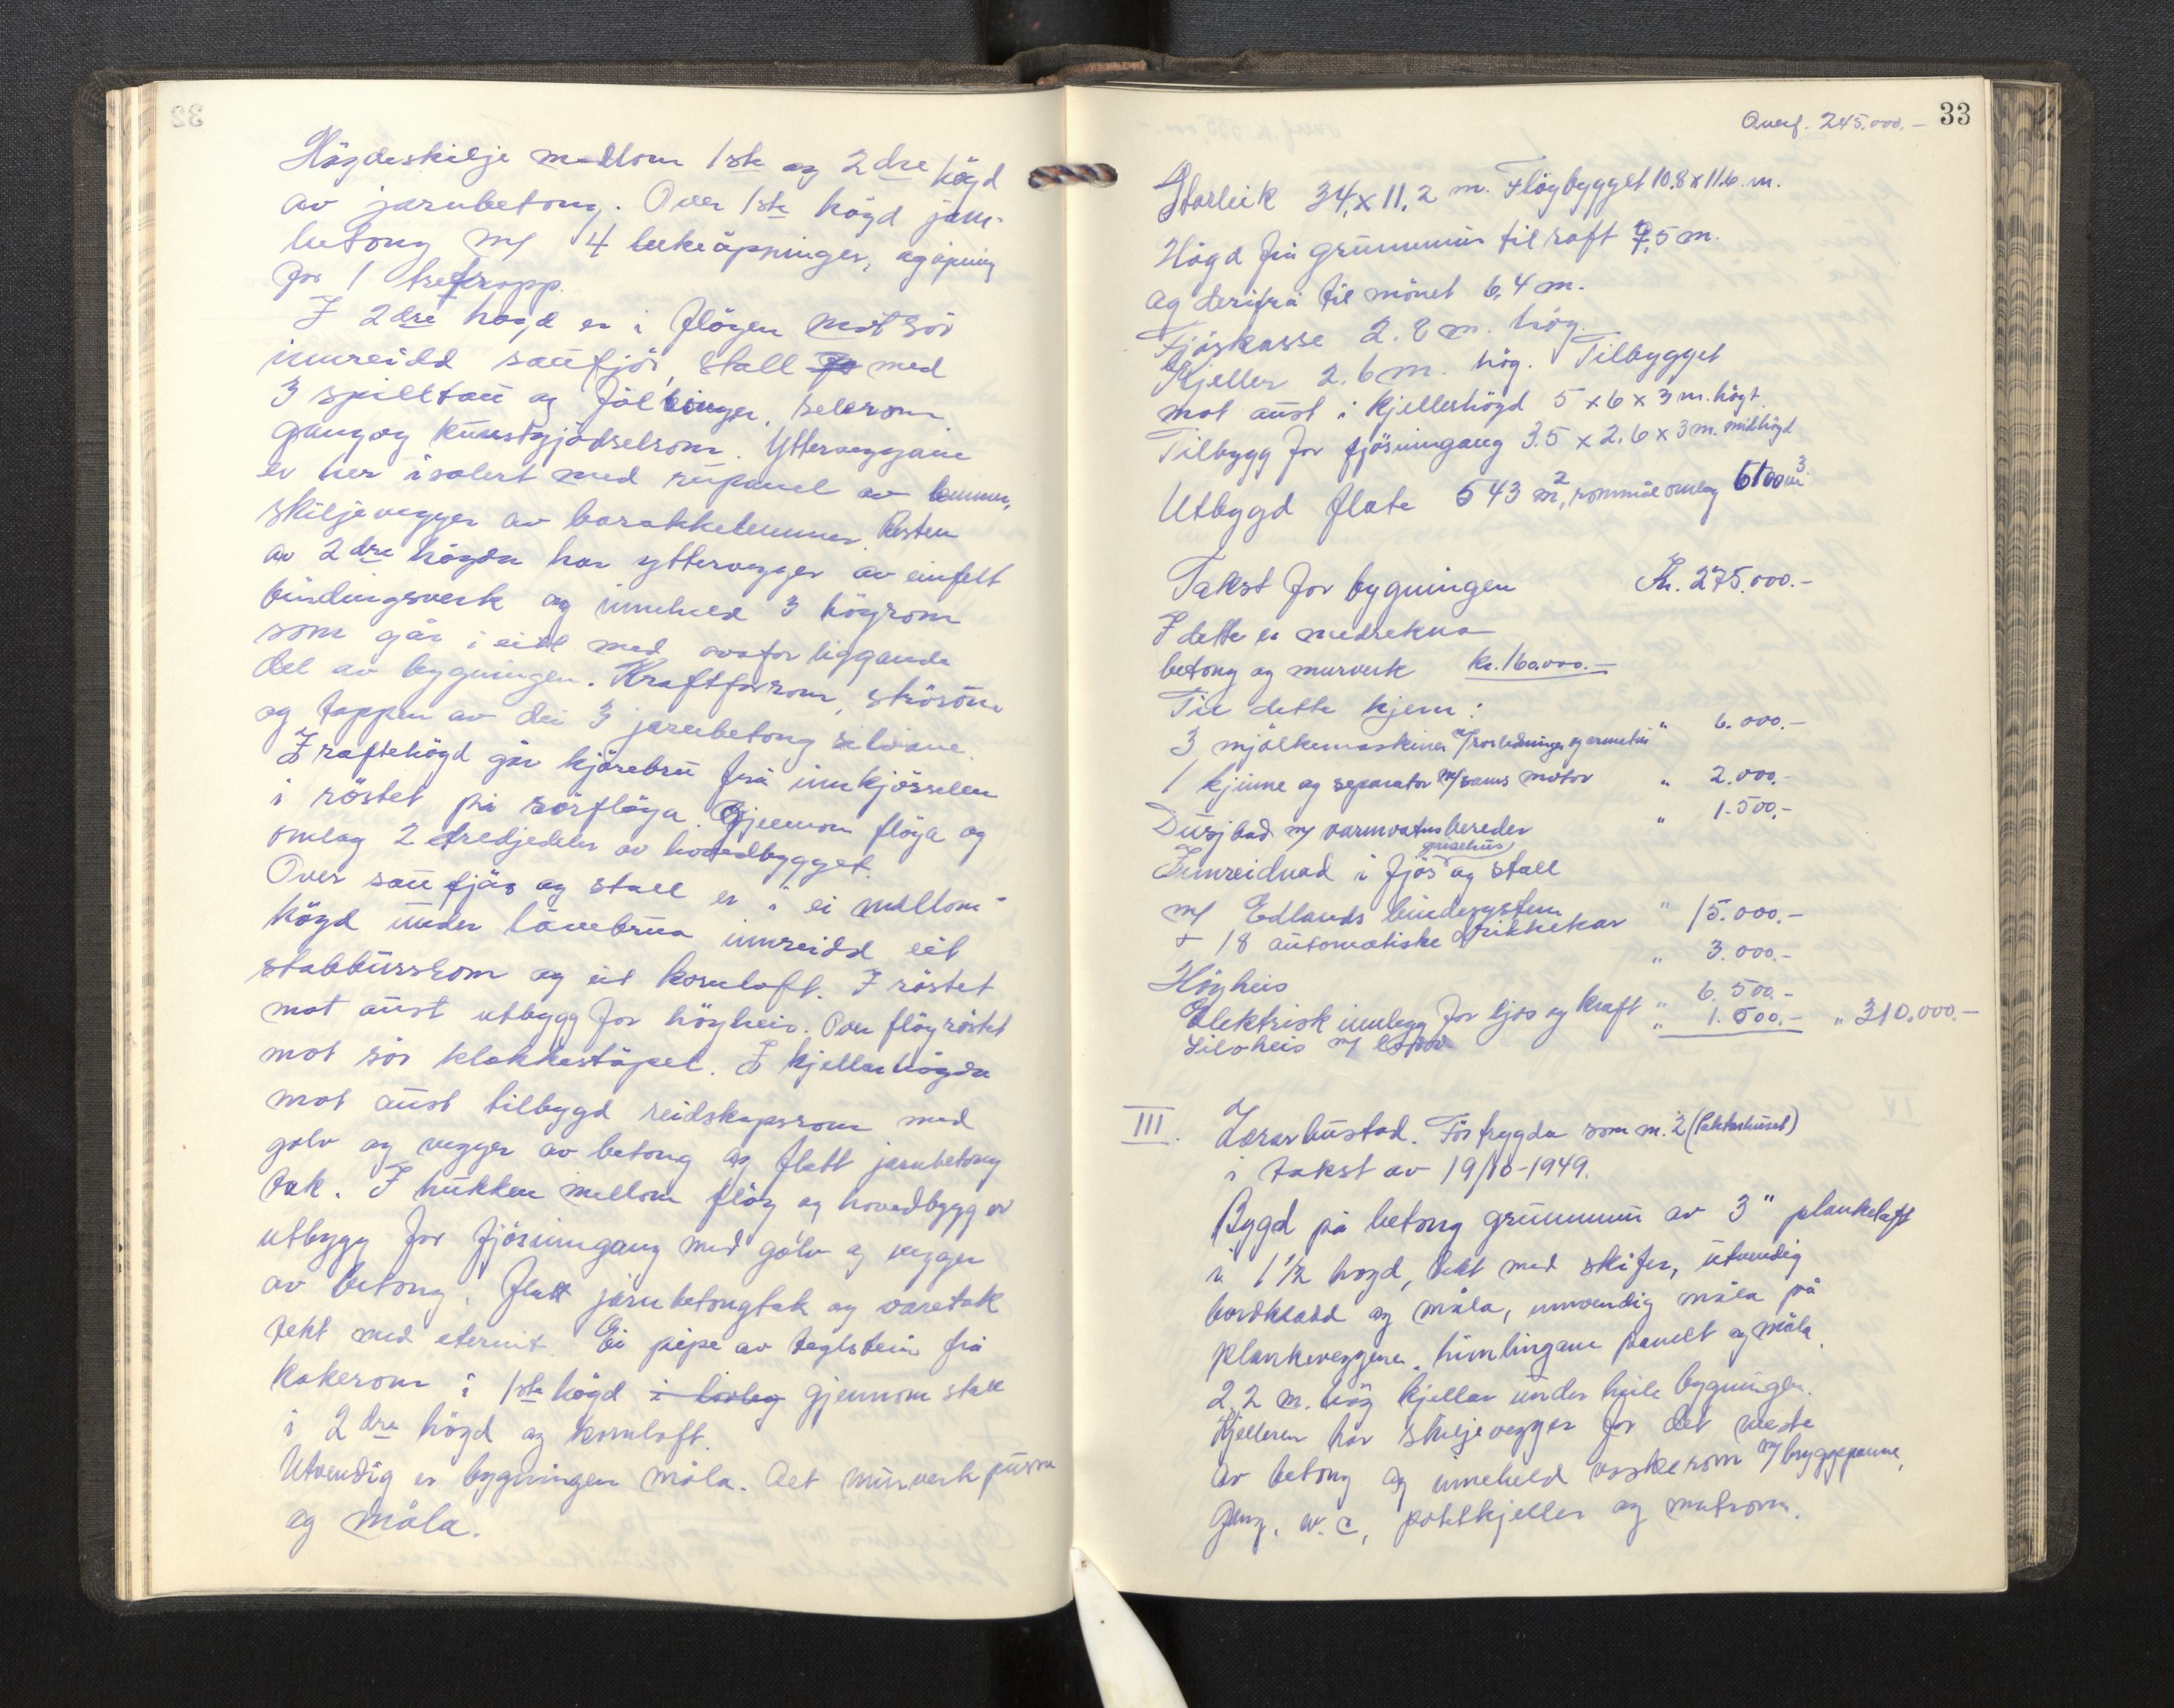 32
Högdeskilje mellom 1ste og 2dre högd
av jarnbetong. Over 1ste högd jarn-
betong m/ 4 lukeåpninger, og åpning
for 1 trefropp.
I 2dre högd er i flögen mot sör
innreidd saufjös, stall med
3 spilltau og fölbinger, selerom
gang og kunstgjödselrom. Ytterveggane
er her isolert med rupanel av lemmer,
skiljevegger av barakkelemmer. Resten
av 2dre högda har yttervegger av einfelt
bindingsverk og inneheld 3 högrom
som går i eitt med ovafor liggande
del av bygningen. Kraftforrom, strörom
og toppen av dei 3 jarnbetong siloane.
I raftehögd går kjörebru frå innkjörselen
i röstet på sörflöya. Gjennom flöya og
omlag 2 tredjedeler av hovedbygget.
Over saufjös og stall er i ei mellom-
högd under låvebrua innreidd eit
stabbursrom og eit kornloft. I röstet
mot aust utbygg for högheis. Over flögröstet
mot sör klokkestöpel. I kjellarhögda
mot aust tilbygd reidskapsrom med
golv og vegger av betong og flatt jarnbetong
tak. I hukken mellom flög og hovedbygg er
utbygg for fjösinngang med golv og vegger
av betong. flatt jarnbetongtak og varetak
tekt med eternit. Ei pipe av teglstein frå
kokerom i 1ste högd i gjennom stall
i 2dre högd og kornloft.
Utvendig er bygningen måla. Det murverk pussa
og måla.
33
Overf. 245.000.-
Storleik 34,x11,2 m. Flögbygget 10.8x11.6 m.
Högd frå grunnmur til raft 7,5 m.
og derifrå til mönet 6,4 m.
Fjöskasse 2.8 m. hög.
Kjeller 2.6 m. hög. Tilbygget
mot aust i kjellerhögd 5 x 6 x 3 m. högt.
Tilbygg for fjösinngang 3.5 x 2.6 x 3 m. midhögd
Utbygd flate 543 m2, rommål omlag 5100 m3.
Takst for bygningen Kr. 275.000.-
I dette er medrekna
betong og murverk kr. 160.000.-
Til dette kjem:
3 mjölkemaskiner m/rörledninger og armatur " 6.000.-
1 kjinne og separator m/sams motor " 2.000.-
Dusjbad m/ varmvatnsbereder " 1.500,-
grisehus,
Innreidnad i fjös og stall
m/ Edlands bindesystem " 15.000.-
+ 18 automatiske drikkekar " 3.000.-
Högheis " 6.500.-
Elektrisk innlegg for ljos og kraft " 1.500.- " 310.000.-
Siloheis m/
III. Lærarbustad. För trygda som m. 2 (Rektorhuset)
i takst av 19/10-1949.
Bygd på betong grunnmur av 3" plankelaft
i 1 1/2 högd, tekt med skifer, utvendig
bordkledd og måla, innvendig måla på
plankeveggene. himlingane panelt og måla.
2.2 m. hög kjellar under heile bygningen.
Kjelleren har skiljevegger for det meste
av betong og inneheld vaskerom m/bryggepanne,
gang, w.c, potetkjeller og matrom.